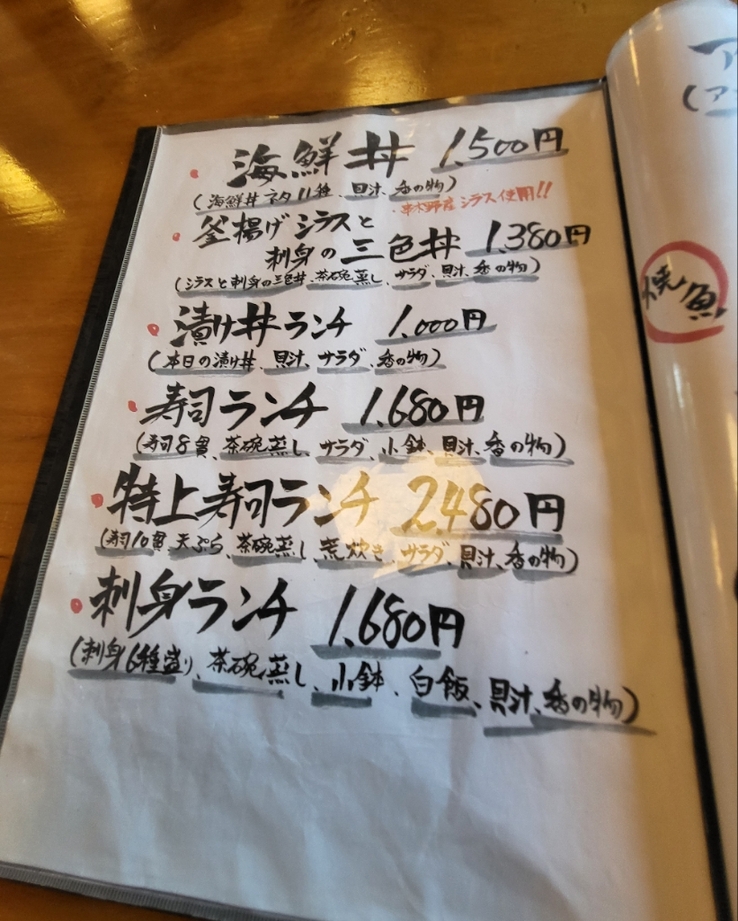 海鮮丼 1,500円
(海鮮丼ネタ11種、貝汁、香の物)
串木野産シラス使用!!
釜揚げシラスと
刺身の三色丼 1,380円
(シラスと刺身の三色丼、茶碗蒸し、サラダ、貝汁、香の物)
漬け丼ランチ 1,000円
(本日の漬け丼、貝汁、サラダ、香の物)
寿司ランチ 1,680円
(寿司8貫、茶碗蒸し、サラダ、小鉢、貝汁、香の物)
特上寿司ランチ 2480円
(寿司10貫、天ぷら、茶碗蒸し、荒炊き、サラダ、貝汁、香の物)
刺身ランチ 1,680円
(刺身6種盛り、茶碗蒸し、小鉢、白飯、貝汁、香の物)
ア
(ア
焼魚